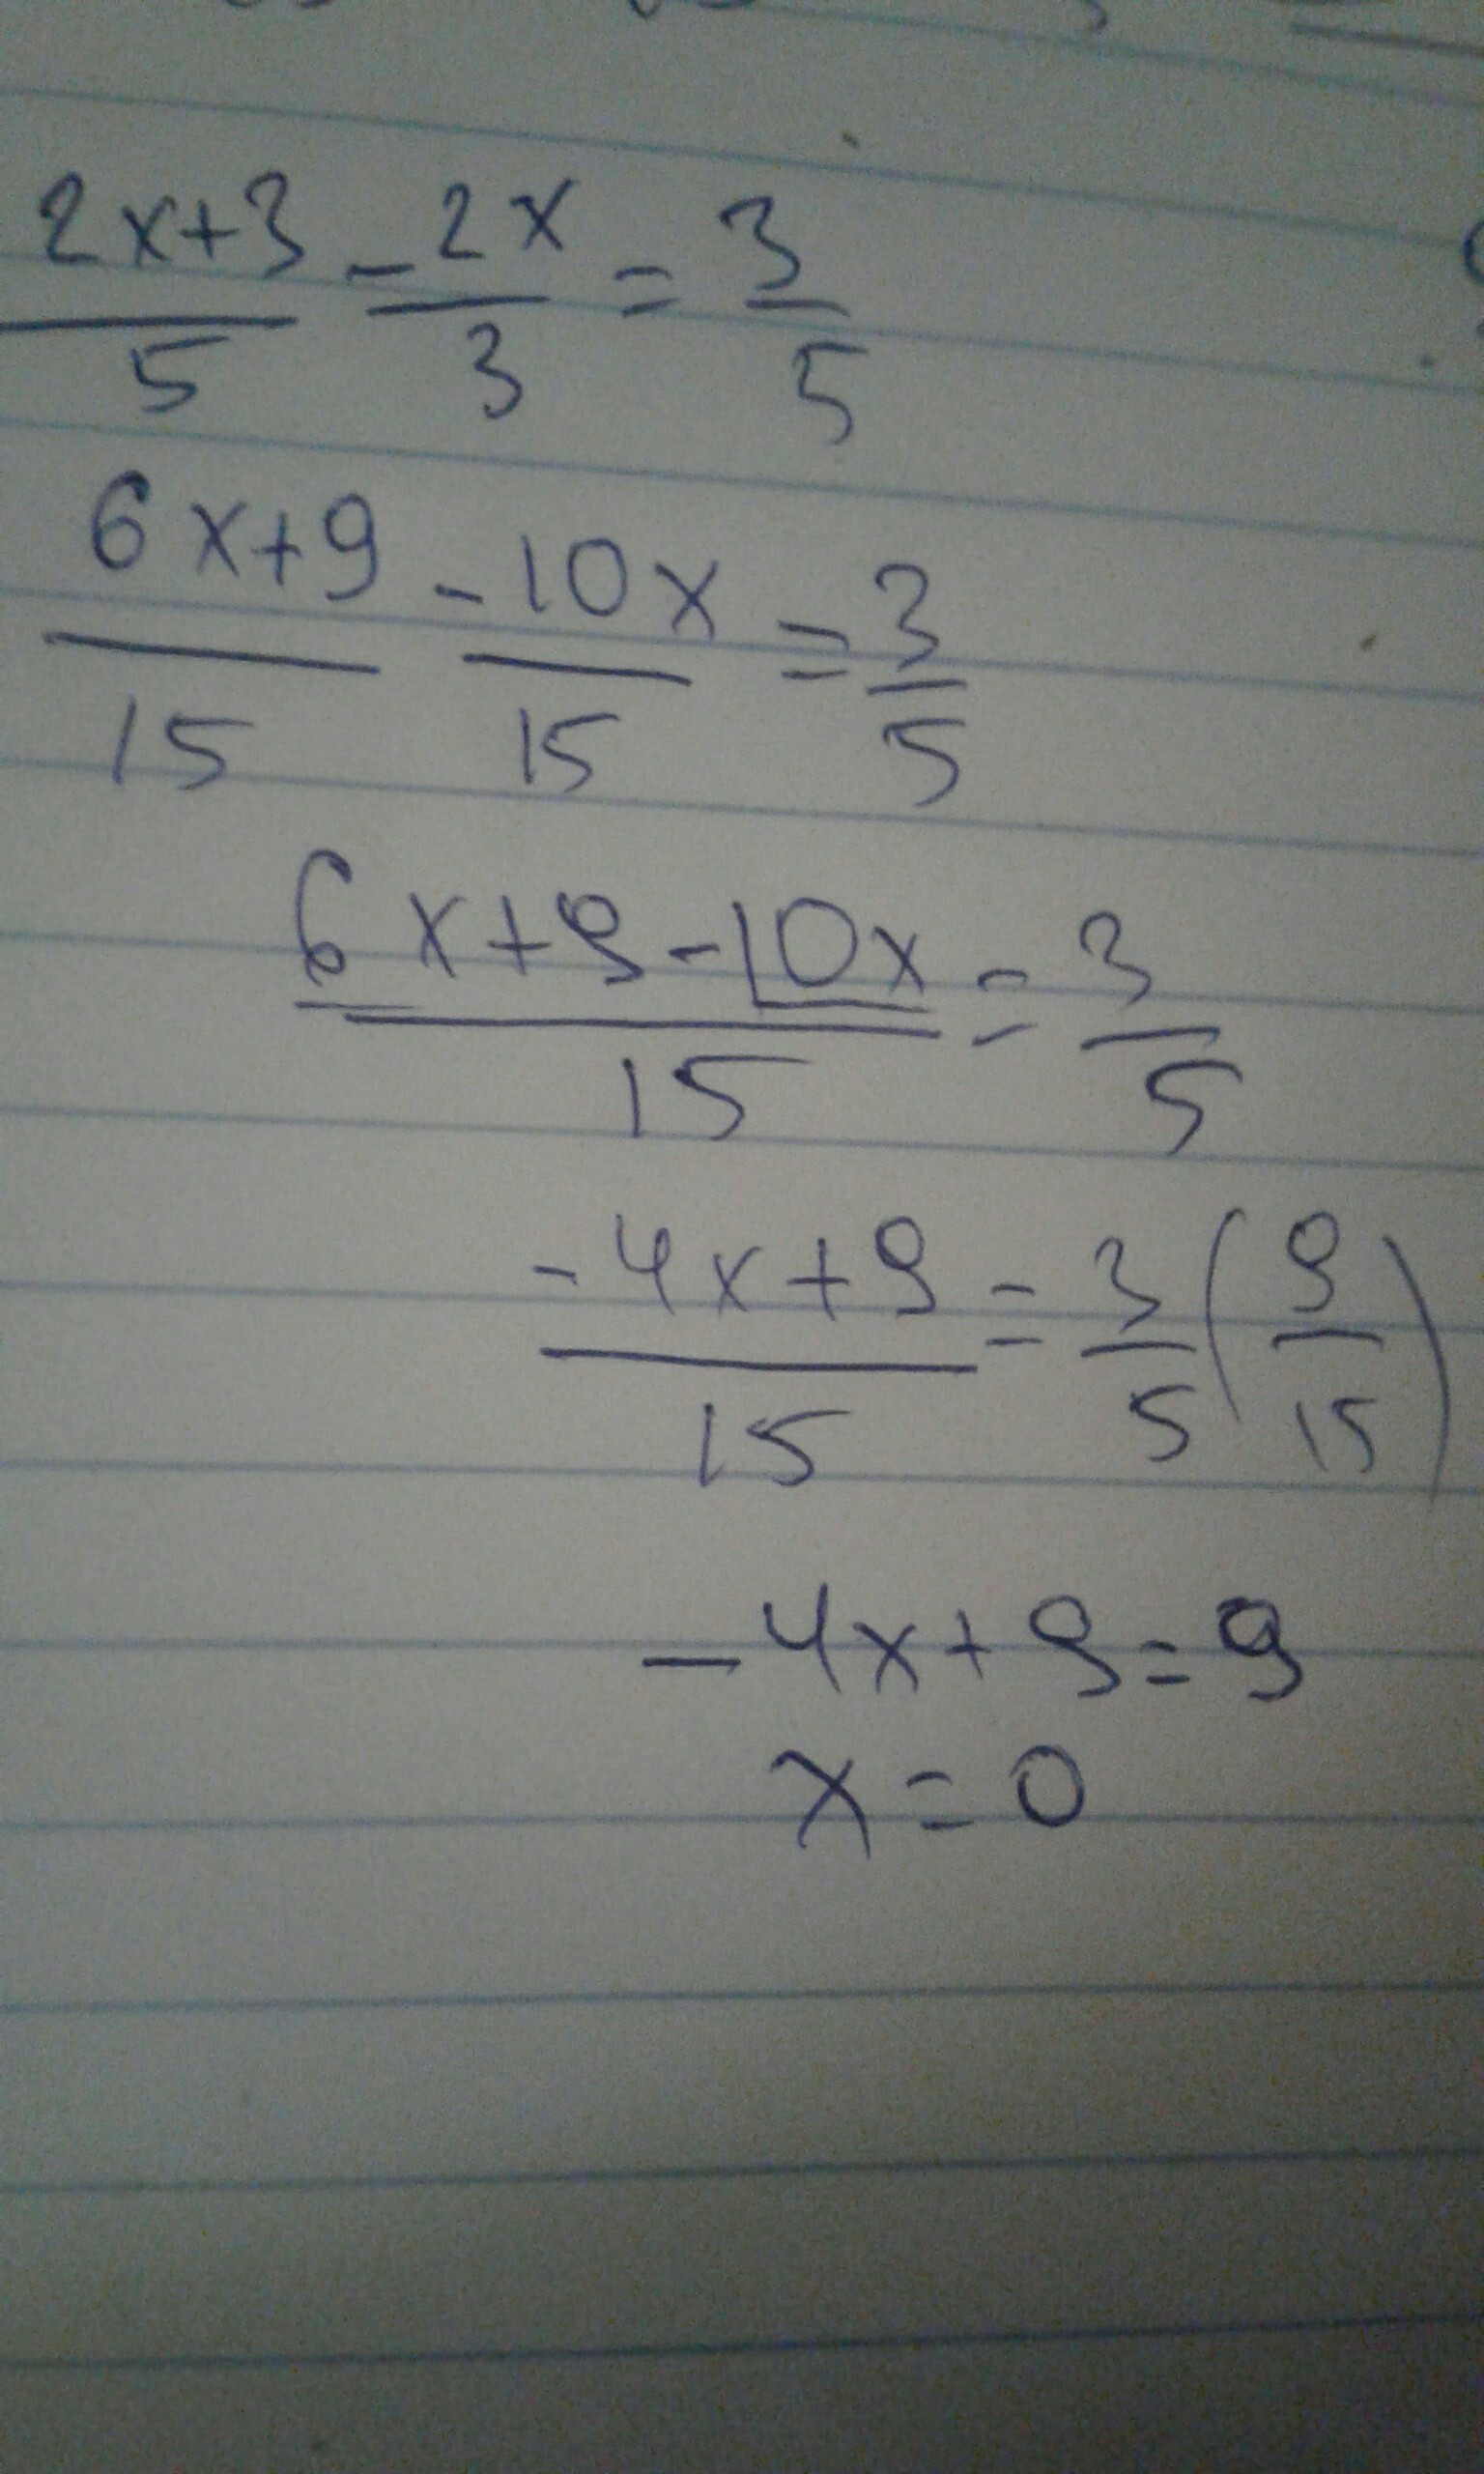 (2x+3)/5 - 2x/3 = 3/5
(6x+9)/15 - 10x/15 = 3/5
(6x+9-10x)/15 = 3/5
(-4x+9)/15 = 3/5 (9/15)
-4x+9=9
x=0